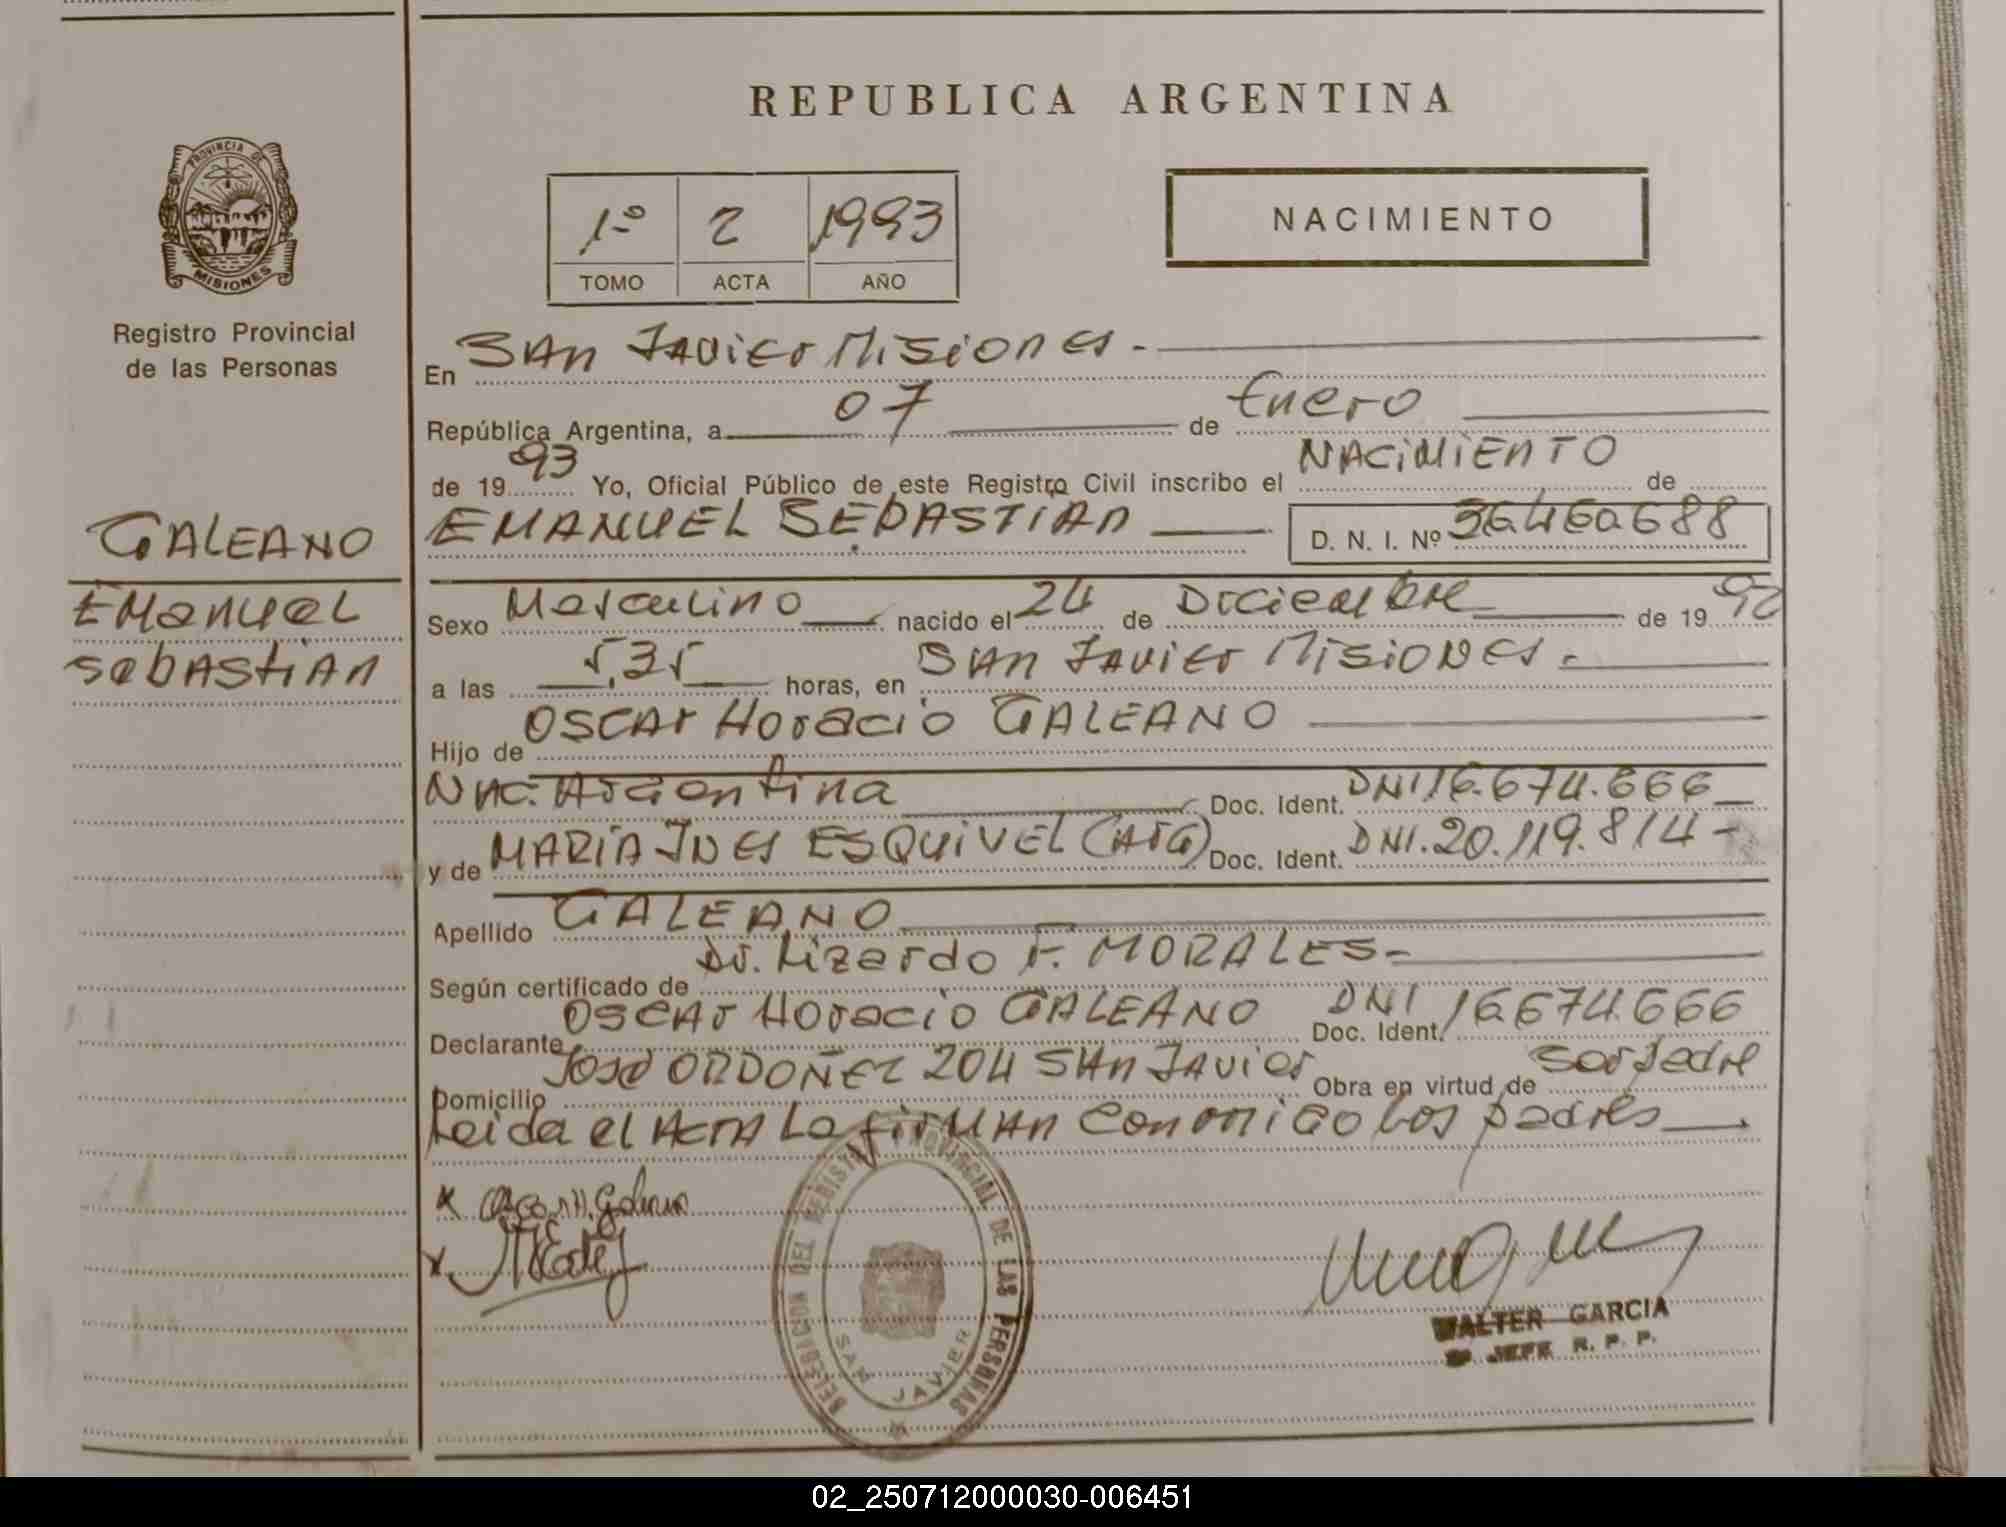 REPUBLICA ARGENTINA
PROVINCIA DE
MISIONES
Registro Provincial
de las Personas
1º 2 1993
TOMO ACTA AÑO
NACIMIENTO
En SAn JAvier Misiones.-
República Argentina, a 07 de Enero
de 1993 Yo, Oficial Público de este Registro Civil inscribo el NACiMiEnTO de
EMANUEL SEBASTIAn D. N. I. Nº 36460688
GALEANO
EManuel
sebAStiAn
Sexo Masculino nacido el 24 de Diciembre de 1992
a las 5,35 horas, en SAn JAvier MiSiONes.-
Hijo de OSCAr Horacio GALEANO
NAc. Argentina Doc. Ident. DNI 16.674.666
y de MARIA INes ESQUiVEL (Arg) Doc. Ident. DNI. 20.119.814-
Apellido GALEANO
Según certificado de Dr. Lizardo F. MORALES-
Declarante OSCAr Horacio GALEANO Doc. Ident. DNI 16674.666
Domicilio José ORDOÑEZ 204 SAn JAvier Obra en virtud de Ser padre
Leida el ACTA La firMAn conmigo los padres
DELEGACION DEL REGISTRO PROVINCIAL DE LAS PERSONAS
SAN JAVIER
WALTER GARCIA
JEFE R. P. P.
02_250712000030-006451